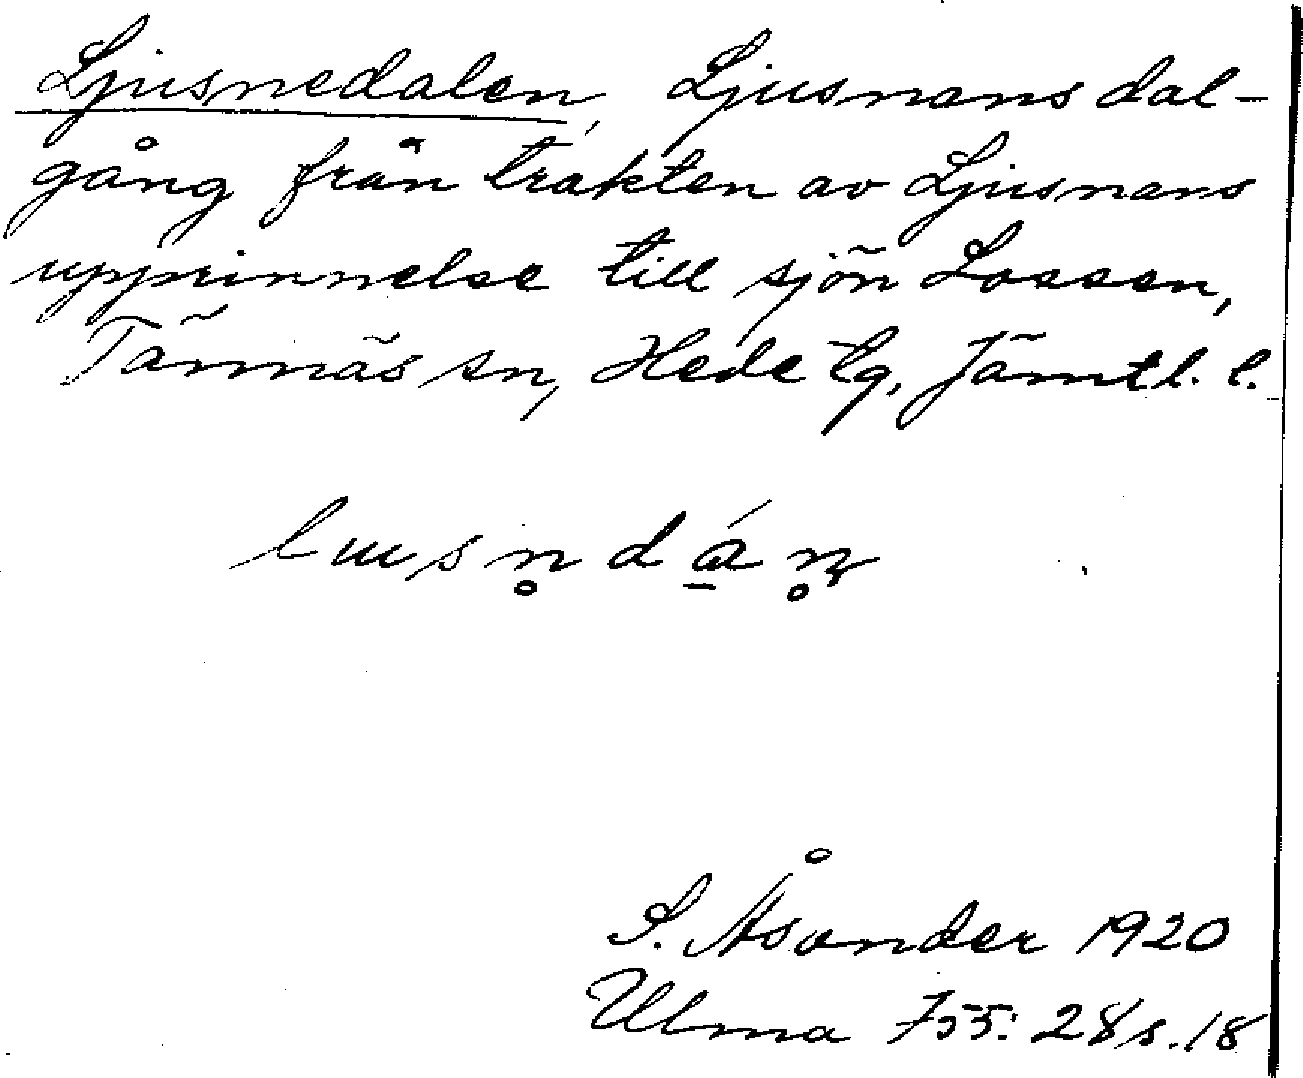 Ljusnedalen, Ljusnans dal-
gång från trakten av Ljusnans
upprinnelse till sjön Lossen,
Tännäs sn, Hede tg, Jämtl. l.
S. Åsander 1920
Ulma 755: 28 s. 18